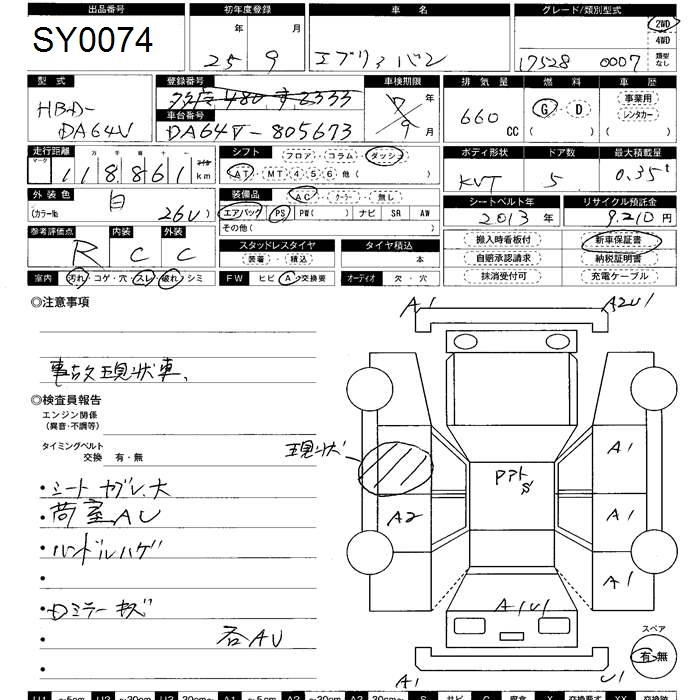 出品番号 初年度登録 車名 グレード/類別型式
SY0074 年 月 エブリィバン 2WD
25 9 4WD
17528 0007 類型なし
型式 登録番号 車検期限 排気量 燃料 車歴
HBD-DA64V 車台番号 年 660 CC G・D 事業用
DA64V-805673 9月 ( ) レンタカー ( )
走行距離 シフト フロア・コラム・ダッシュ ボディ形状 ドア数 最大積載量
マーク 十万千百十 118861 km AT・MT 4 5 6 他( ) KVT 5 0.35t
外装色 装備品 AC・クーラー・無し シートベルト年 リサイクル預託金
(カラー№ 白 26U) エアバッグ PS PW( ) ナビ SR AW 2013年 9.210円
その他( )
参考評価点 内装 外装 スタッドレスタイヤ タイヤ積込 搬入時看板付 新車保証書
R C C 装着・積込 本 自賠承認請求 納税証明書
室内 汚れ・コゲ・穴・スレ・破れ・シミ FW ヒビ・A・交換要 オーディオ 欠・穴 抹消受付可 充電ケーブル
○注意事項 A1 A2U1
事故現状車、
○検査員報告
エンジン関係
(異音・不調等)
タイミングベルト
交換 有・無 現状 A1
・シートヤブレ大 Pアト
・荷室AU A2 A1
・ハンドルハゲ
・ A1
・Dミラーキズ A1U1
・ 各AU スペア
有・無
A1 U1
U1 ~5cm U2 ~30cm U3 30cm~ A1 ~5cm A2 ~30cm A3 30cm~ S サビ C 腐食 X 交換要す XX 交換跡